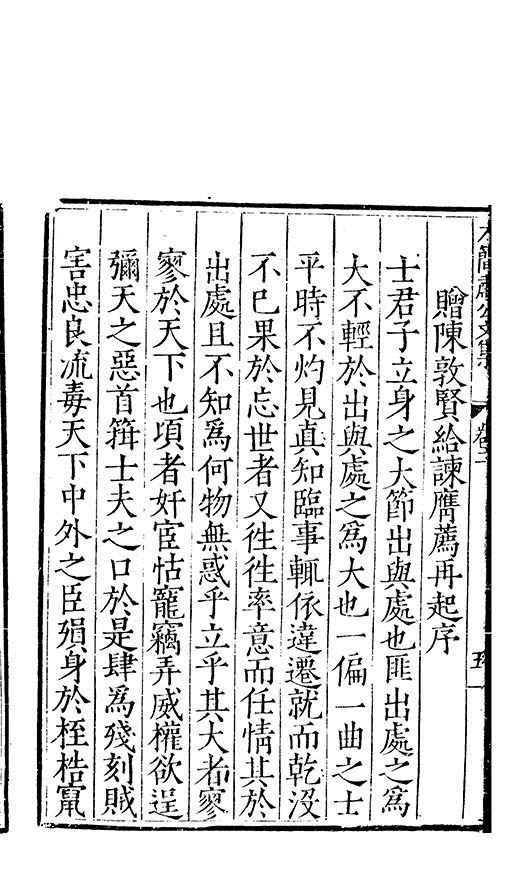 簡肅公文集 卷二
贈陳敦賢給諫膺薦再起序
士君子立身之大節出與處也匪出處之爲
大不輕於出與處之爲大也一偏一曲之士
平時不灼見真知臨事輒依違遷就而乾沒
不已果於忘世者又徃徃率意而任情其於
出處且不知爲何物無惑乎立乎其大者寥
寥於天下也項者奸宦怙寵竊弄威權欲逞
彌天之惡首箝士夫之口於是肆爲殘刻賊
害忠良流毒天下中外之臣殞身於桎梏竄